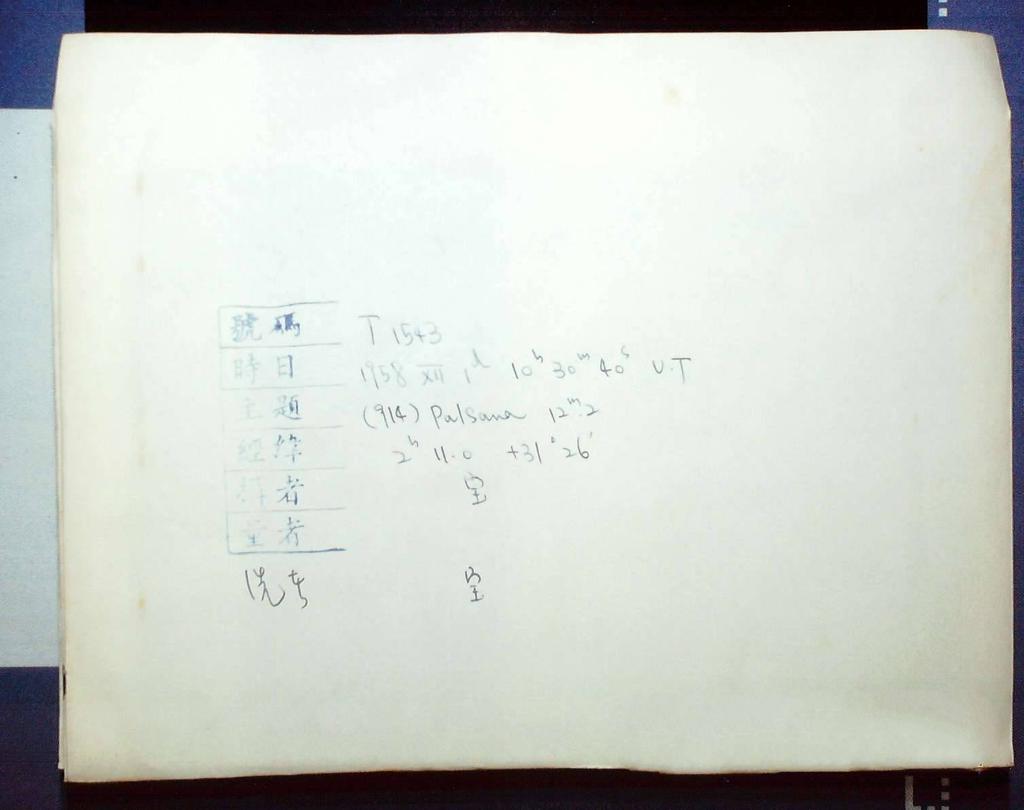 號碼 T 1543
時日 1958 XII 1d 10h 30m 40s U.T
主題 (914) Palsana 12m.2
經緯 2h 11.0 +31°26'
者 室
量者
洗者 室